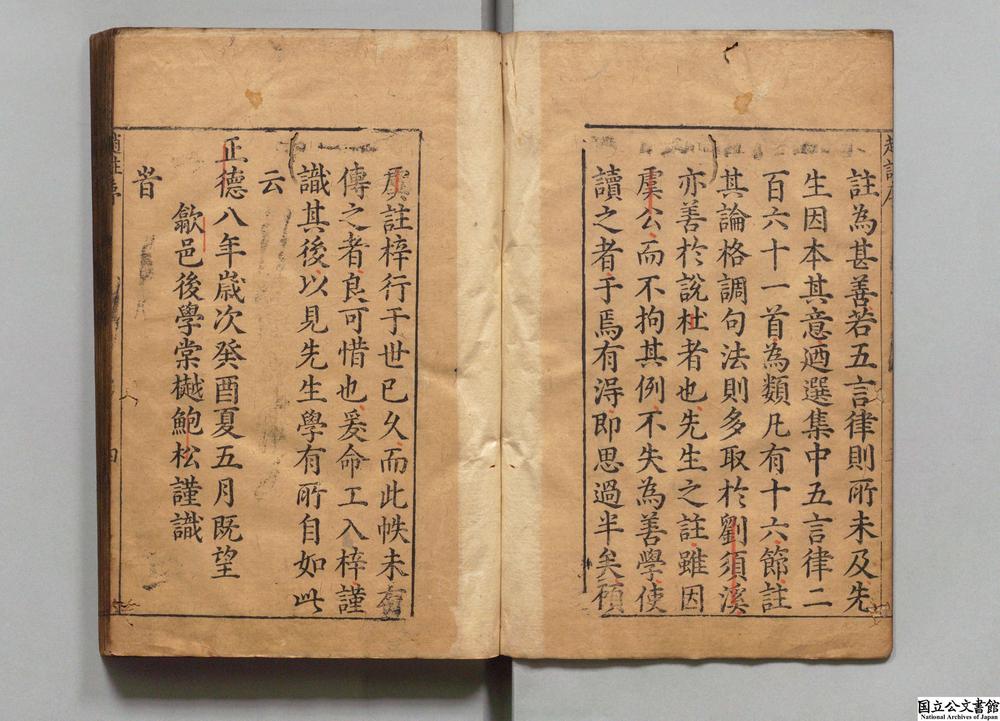 註為甚善若五言律則所未及先
生因本其意迺選集中五言律二
百六十一首為類凡有十六節註
其論格調句法則多取於劉須溪
亦善於說杜者也先生之註雖因
虞公而不拘其例不失為善學使
讀之者于焉有淂即思過半矣顧
虞註梓行于世已久而此帙未有
傳之者良可惜也爰命工入梓謹
識其後以見先生學有所自如此
云
正德八年歲次癸酉夏五月既望
歙邑後學棠樾鮑松謹識
国立公文書館
National Archives of Japan